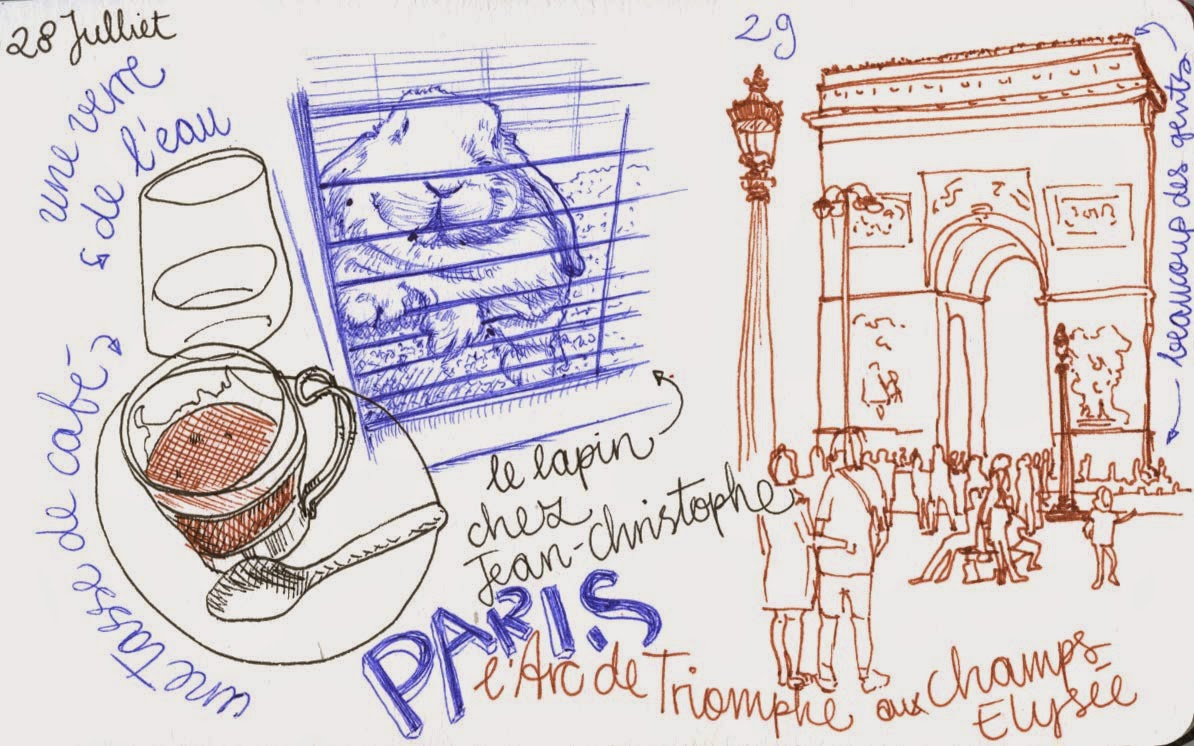 28 Julliet
une verre
de l'eau
une tasse de café
le lapin
chez
Jean-Christophe
PARIS
29
beaucoup des gents
l'Arc de Triomphe aux Champs-
Elysée